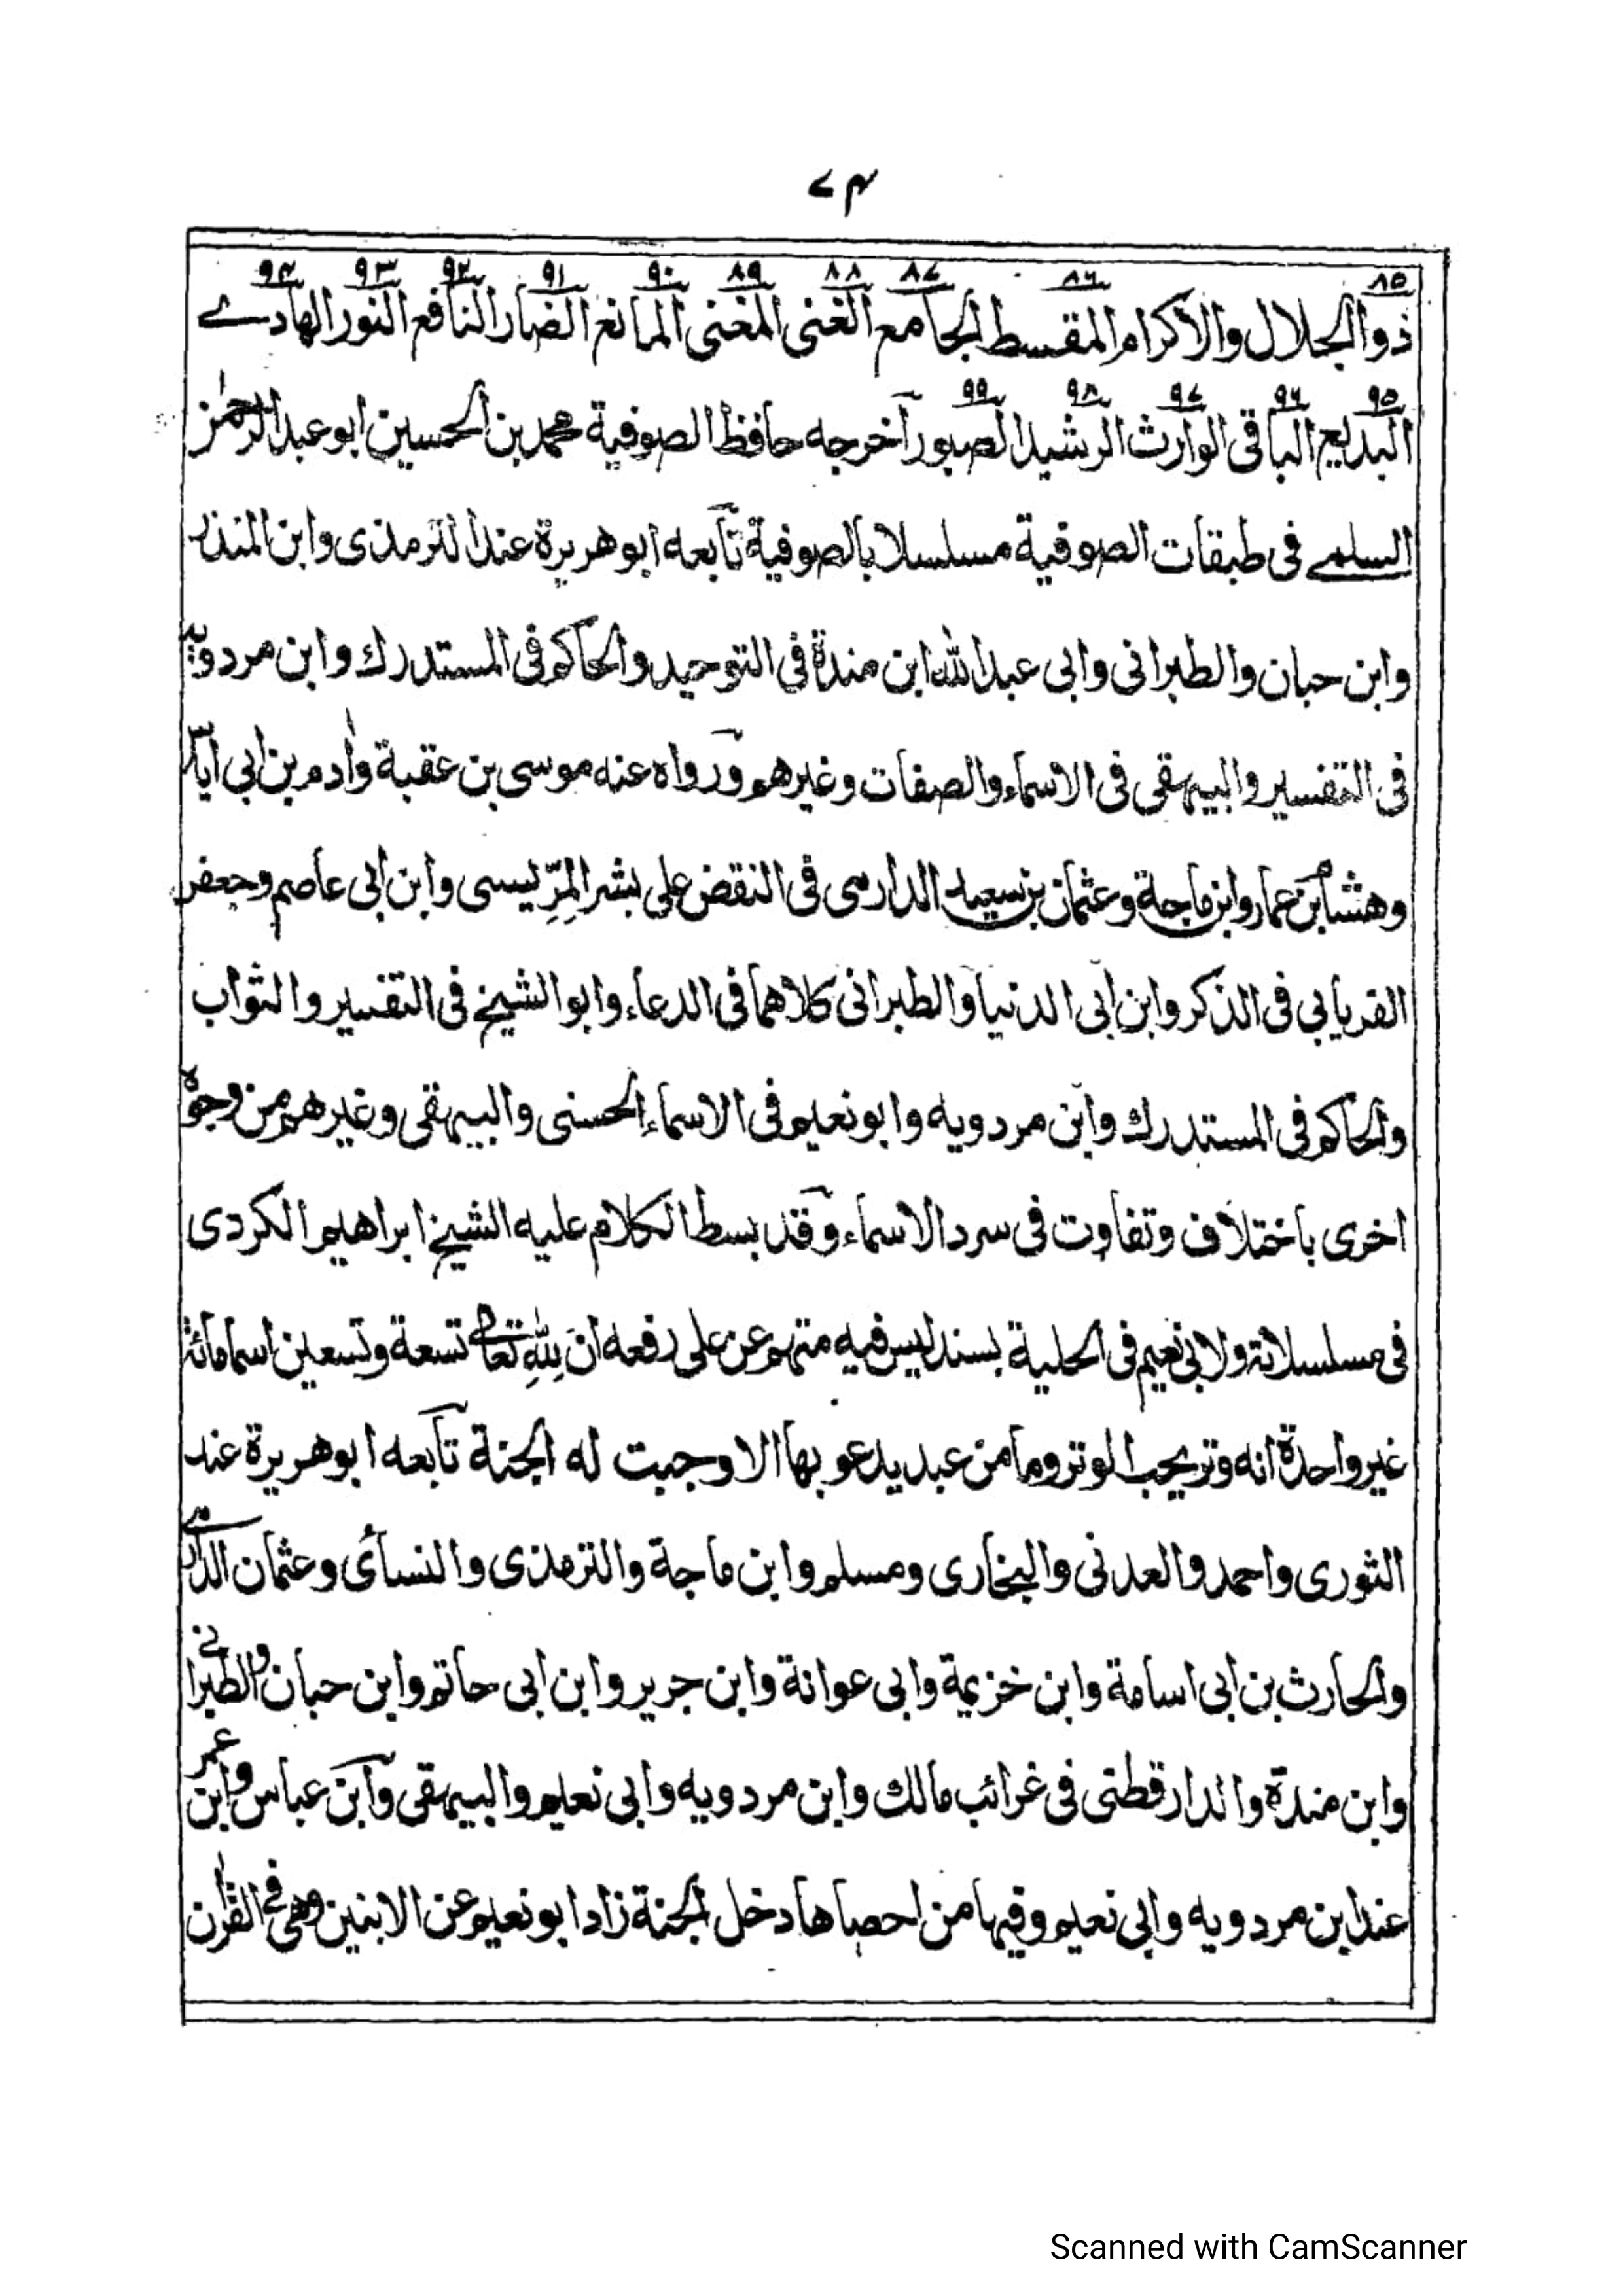 ۷۴
۸۵ ۸۶ ۸۷ ۸۸ ۸۹ ۹۰ ۹۱ ۹۲ ۹۳ ۹۴
ذو الجلال والاكرام المقسط الجامع الغنى المغنى المانع الضار النافع النور الهادے
۹۵ ۹۶ ۹۷ ۹۸ ۹۹
البديع الباقى الوارث الرشيد الصبور آخرجه حافظ الصوفية محمد بن الحسين ابو عبد الرحمٰن
السلمے فى طبقات الصوفية مسلسلا بالصوفية تابعه ابو هريرة عند الترمذى وابن المنذر
وابن حبان والطبرانى وابى عبد الله ابن مندة فى التوحيد والحاكم فى المستدرك وابن مردويه
فى التفسير والبيهقى فى الاسماء والصفات وغيرهم ورواه عنه موسى بن عقبة وأدم بن ابى اياس
وهشام بن عمار وابن ماجة وعثمان بن سعيد الدارمى فى النقض على بشر المِرِّيسى وابن ابى عاصم وجعفر
الفريابى فى الذكر وابن ابى الدنيا والطبرانى كلاهما فى الدعاء وابو الشيخ فى التفسير والثواب
والحاكم فى المستدرك وابن مردويه وابو نعيم فى الاسماء الحسنى والبيهقى وغيرهم من وجوه
اخرى باختلاف وتفاوت فى سرد الاسماء وقد بسط الكلام عليه الشيخ ابراهيم الكردى
فى مسلسلاته ولابى نعيم فى الحلية بسند ليس فيه متهم عن على رفعه ان لِلّٰهِ تعالے تسعة وتسعين اسما مائة
غير واحدة انه وتر يحب الوتر وما من عبد يدعو بها الا وجبت له الجنة تابعه ابو هريرة عند
الثورى واحمد والعدنى والبخارى ومسلم وابن ماجة والترمذى والنسائى وعثمان الدارمے
والحارث بن ابى اسامة وابن خزيمة وابى عوانة وابن جرير وابن ابى حاتم وابن حبان والطبرانے
وابن مندة والدارقطنى فى غرائب مالك وابن مردويه وابى نعيم والبيهقى وابن عباس وابن عمر
عند ابن مردويه وابى نعيم وفيها من احصاها دخل الجنة زاد ابو نعيم عن الابنين وهى فے القرآن
Scanned with CamScanner